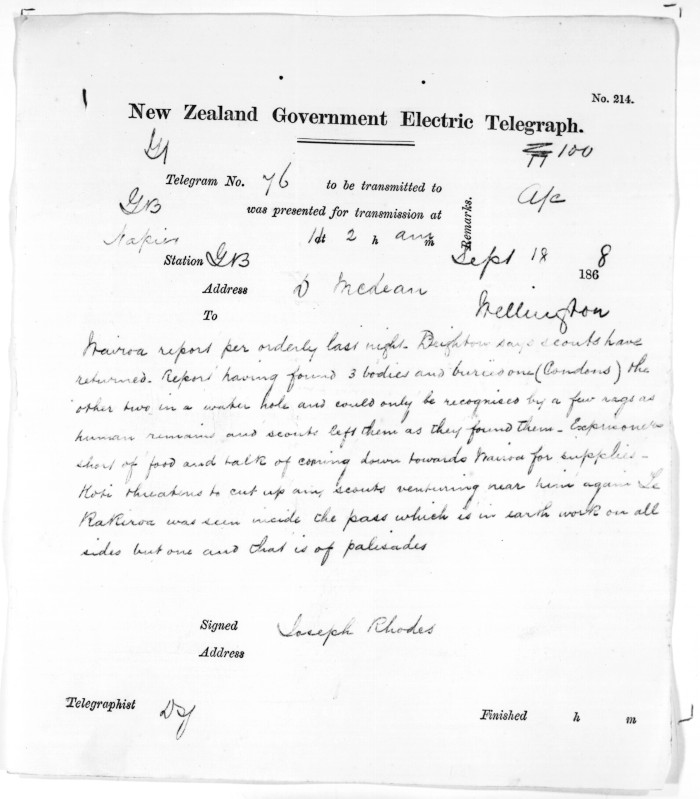 No. 214.
New Zealand Government Electric Telegraph.
100
Telegram No. 76 to be transmitted to
Remarks. A/c
GB was presented for transmission at
Napier 2 h m
Station GB Sept 18 1868
Address D McLean
To Wellington
Wairoa report per orderly last night. Deighton says scouts have
returned. Report having found 3 bodies and buried one (Condons) the
other two in a water hole and could only be recognised by a few rags as
human remains and scouts left them as they found them - Exprisoners
short of food and talk of coming down towards Wairoa for supplies -
threatens to cut up any scouts venturing near him again Te
was seen inside the pass which is in earth work on all
sides but one and that is of palisades
Signed Joseph Rhodes
Address
Telegraphist
Finished h m